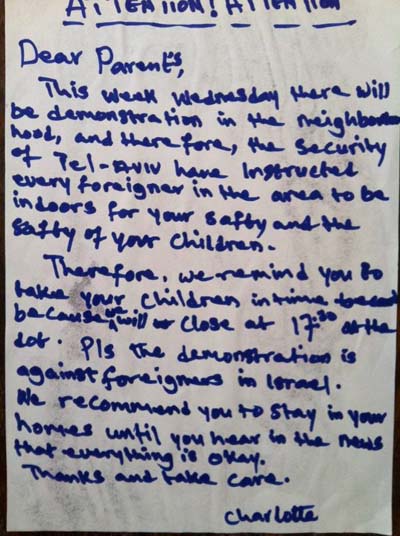 ATTENTION! ATTENTION
Dear Parents,
This week wednesday there will
be demonstration in the neighbor
hood, and therefore, the security
of Tel-Aviv have Instructed
every foreigner in the area to be
indoors for your safty and the
safty of your children.
Therefore, we remind you to
take your children intime
because we will close at 17:30 at the
dot. Pls the demonstration is
against foreigners in Israel.
We recommend you to stay in your
homes until you hear in the news
that everything is okay.
Thanks and take care.
Charlotte